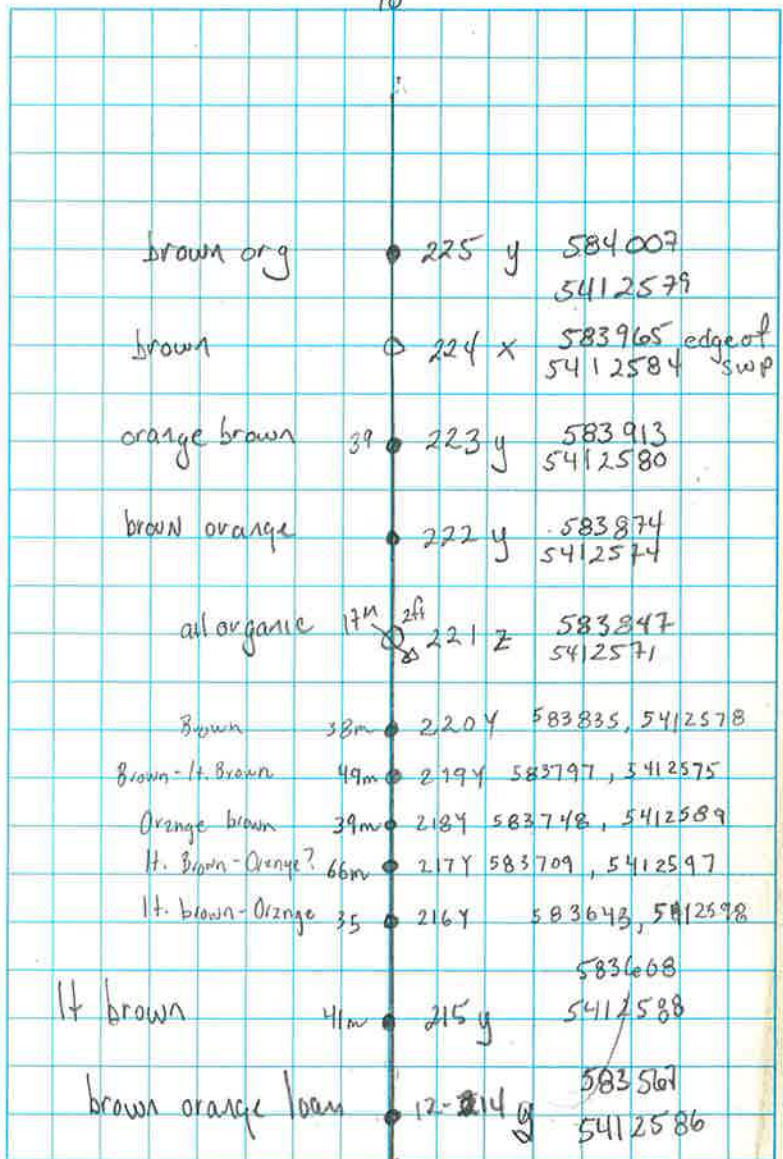 10
brown org 225 y 584007
5412579
brown 224 x 583965 edge of
5412584 swp
orange brown 39 223 y 583913
5412580
brown orange 222 y 583874
5412574
all organic 17m 2ft 221 z 583847
5412571
Brown 38m 220Y 583835, 5412578
Brown-lt. Brown 49m 219Y 583797, 5412575
Orange brown 39m 218Y 583748, 5412589
lt. Brown-Orange? 66m 217Y 583709, 5412597
lt. brown-Orange 35 216Y 583643, 5412598
583608
lt brown 41m 215 y 5412588
583567
brown orange loan 12-214 y 5412586